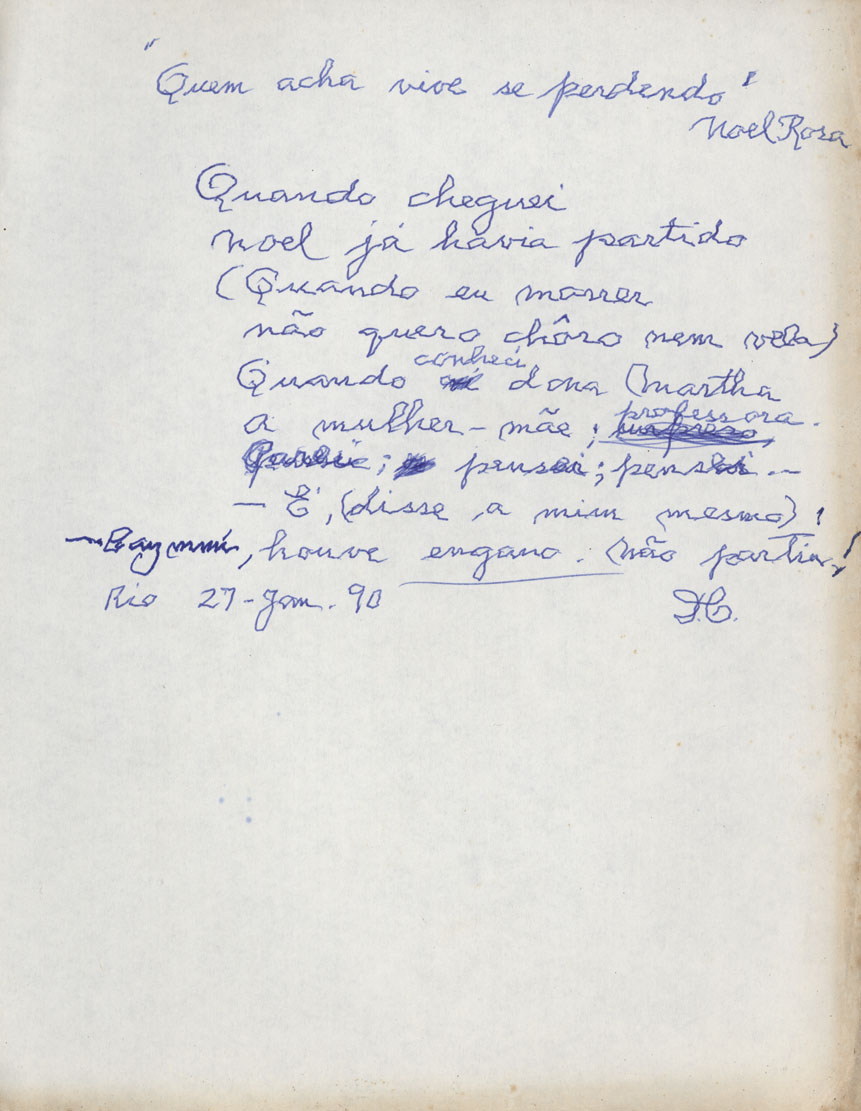 "Quem acha vive se perdendo"
Noel Rosa
Quando cheguei
Noel já havia partido
(Quando eu morrer
não quero chôro nem vela)
conheci
Quando dona Martha
professora.
a mulher-mãe;
Parei; pensei; pensei..-
— É, (disse a mim mesmo)!
—Caymmi, houve engano. Não partiu!
Rio 27-Jan.90
D.C.